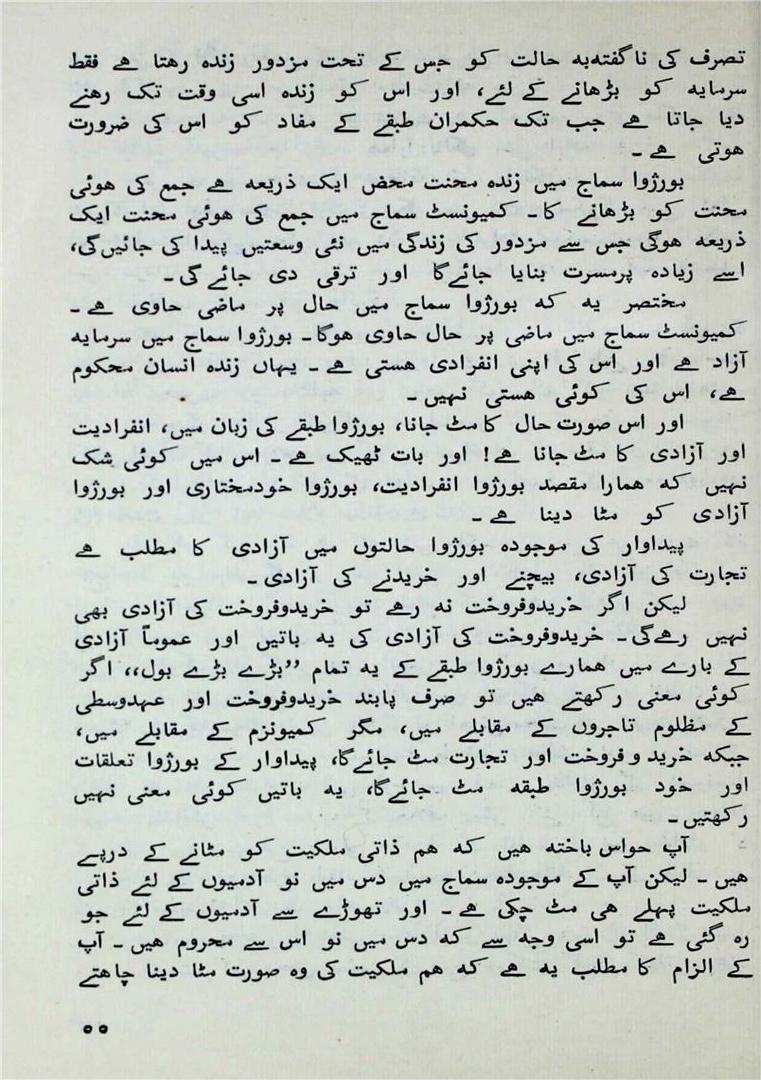 تصرف کی ناگفتہ‌بہ حالت کو جس کے تحت مزدور زندہ رھتا ھے فقط
سرمایہ کو بڑھانے کے لئے، اور اس کو زندہ اسی وقت تک رھنے
دیا جاتا ھے جب تک حکمران طبقے کے مفاد کو اس کی ضرورت
ھوتی ھے۔
بورژوا سماج میں زندہ محنت محض ایک ذریعہ ھے جمع کی ھوئی
محنت کو بڑھانے کا۔ کمیونسٹ سماج میں جمع کی ھوئی محنت ایک
ذریعہ ھوگی جس سے مزدور کی زندگی میں نئی وسعتیں پیدا کی جائیں‌گی،
اسے زیادہ پرمسرت بنایا جائے‌گا اور ترقی دی جائے گی۔
مختصر یہ کہ بورژوا سماج میں حال پر ماضی حاوی ھے۔
کمیونسٹ سماج میں ماضی پر حال حاوی ھوگا۔ بورژوا سماج میں سرمایہ
آزاد ھے اور اس کی اپنی انفرادی ھستی ھے۔ یہاں زندہ انسان محکوم
ھے، اس کی کوئی ھستی نہیں۔
اور اس صورت حال کا مٹ جانا، بورژوا طبقے کی زبان میں، انفرادیت
اور آزادی کا مٹ جانا ھے! اور بات ٹھیک ھے۔ اس میں کوئی شک
نہیں کہ ھمارا مقصد بورژوا انفرادیت، بورژوا خودمختاری اور بورژوا
آزادی کو مٹا دینا ھے۔
پیداوار کی موجودہ بورژوا حالتوں میں آزادی کا مطلب ھے
تجارت کی آزادی، بیچنے اور خریدنے کی آزادی۔
لیکن اگر خریدوفروخت نہ رھے تو خریدوفروخت کی آزادی بھی
نہیں رھے‌گی۔ خریدوفروخت کی آزادی کی یہ باتیں اور عموماً آزادی
کے بارے میں ھمارے بورژوا طبقے کے یہ تمام ’’بڑے بڑے بول،، اگر
کوئی معنی رکھتے ھیں تو صرف پابند خریدوفروخت اور عہدوسطی
کے مظلوم تاجروں کے مقابلے میں، مگر کمیونزم کے مقابلے میں،
جبکہ خرید و فروخت اور تجارت مٹ جائے‌گا، پیداوار کے بورژوا تعلقات
اور خود بورژوا طبقہ مٹ جائے‌گا، یہ باتیں کوئی معنی نہیں
رکھتیں۔
آپ حواس باختہ ھیں کہ ھم ذاتی ملکیت کو مٹانے کے درپے
ھیں۔ لیکن آپ کے موجودہ سماج میں دس میں نو آدمیوں کے لئے ذاتی
ملکیت پہلے ھی مٹ چکی ھے۔ اور تھوڑے سے آدمیوں کے لئے جو
رہ گئی ھے تو اسی وجہ سے کہ دس میں نو اس سے محروم ھیں۔ آپ
کے الزام کا مطلب یہ ھے کہ ھم ملکیت کی وہ صورت مٹا دینا چاھتے
۵۵